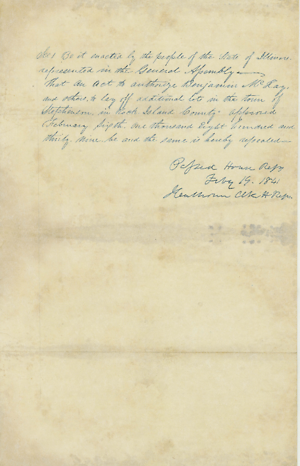 Be it enacted by the people of the State of Illinois
represented in the General Assembly
That an act to authorize Benjamin McKay
and others to lay off additional lots in the town of
Stephenson, in Rock Island County approved
February sixth one thousand Eight hundred and
thirty nine be and the same is hereby repealed
Passed House Reps
Feby 19. 1841
Clk H Reps